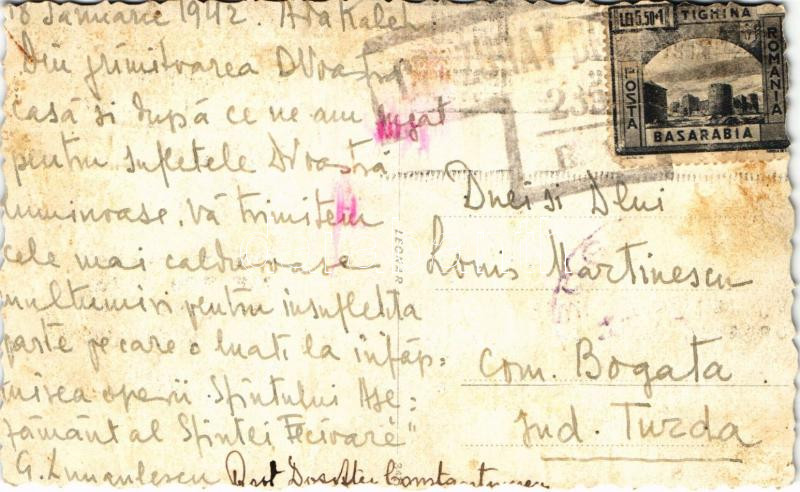 18 Ianuarie 1942. Adakaleh.
Din primitoarea DVoastră
casă si după ce ne am rugat
pentru sufletele DVoastră
luminoase, Vă trimitem
cele mai calduroase
multumiri pentru insufletita
parte pe care o luati la infăp=
tuirea operii Sfintului Ase=
zământ al Sfintei Fecioare"
G.
Constantinescu
LEI 5.50+1
TIGHINA
ROMANIA
POSTA
BASARABIA
Dnei si Dlui
Louis Martinescu
com. Bogata
jud. Turda
LEONAR